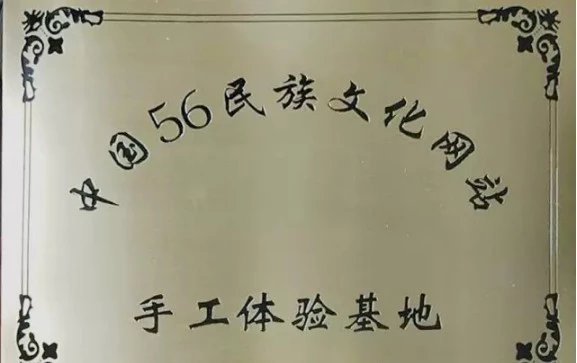 中国56民族文化网站
手工体验基地